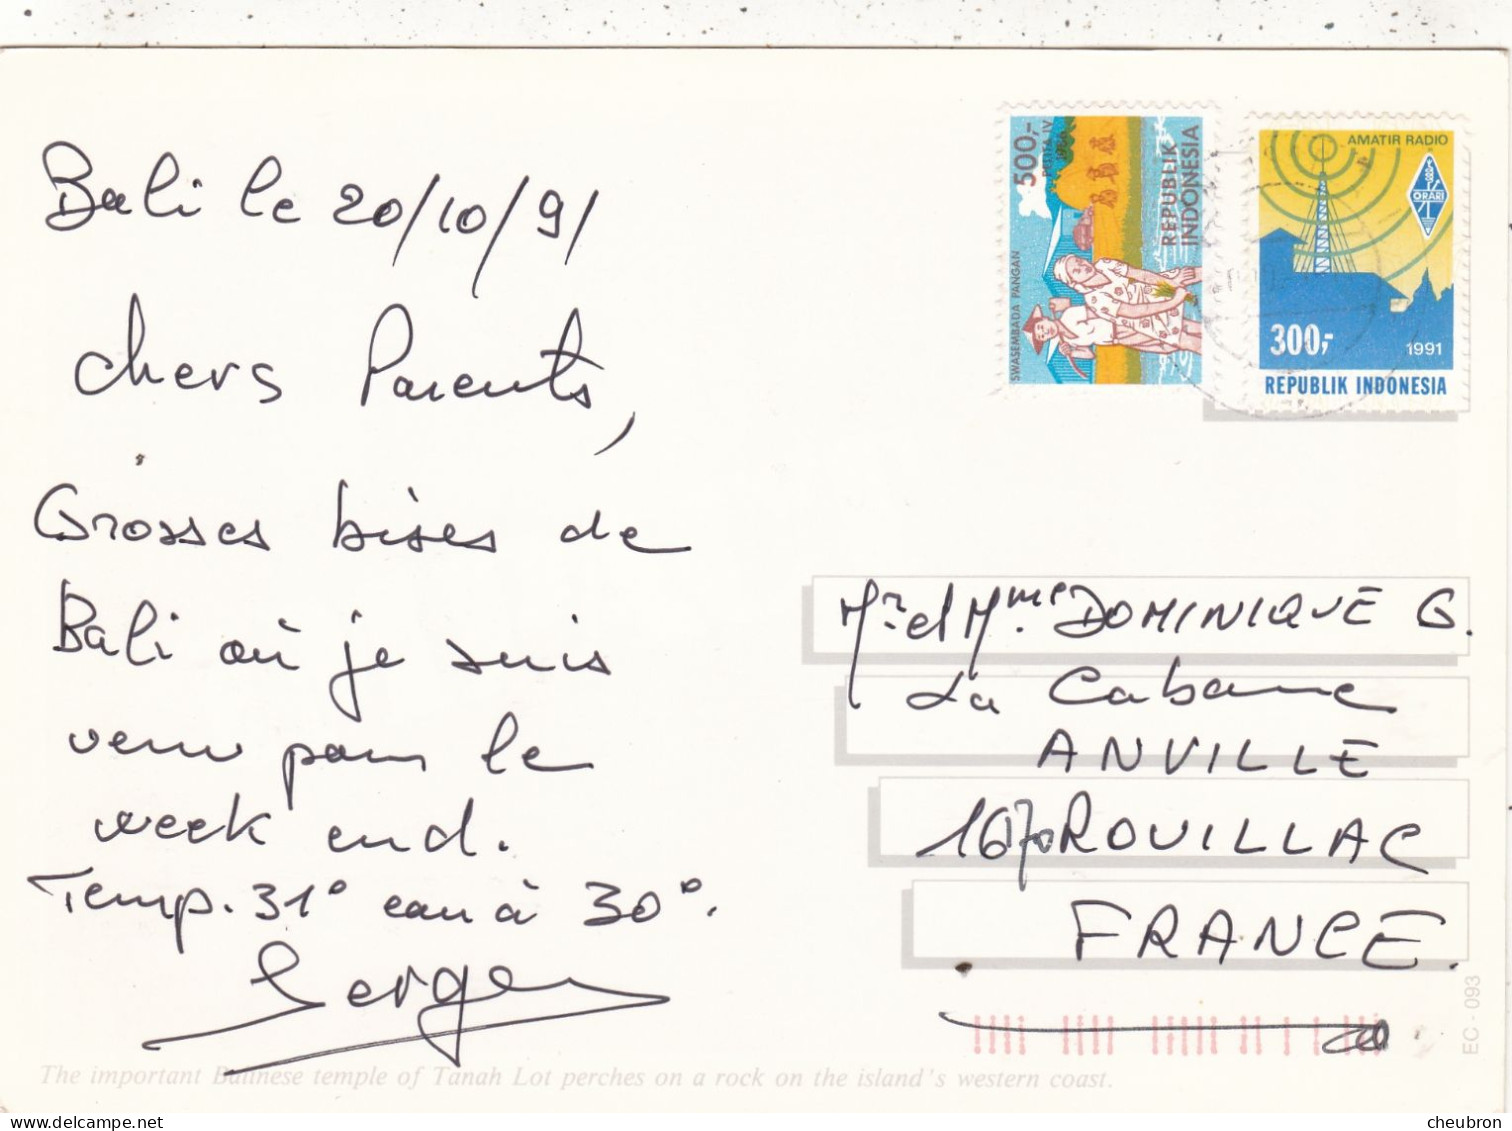 Bali le 20/10/91
Chers Parents,
Grosses bises de
Bali où je suis
venu pour le
week end.
Temp. 31° eau à 30°.
Serge
500,-
PELITA IV
SWASEMBADA PANGAN
REPUBLIK
INDONESIA
AMATIR RADIO
ORARI
300,-
1991
REPUBLIK INDONESIA
Mr et Mme DOMINIQUE G.
La Cabane
ANVILLE
16170 ROUILLAC
FRANCE.
EC - 093
The important Balinese temple of Tanah Lot perches on a rock on the island's western coast.
cheubron